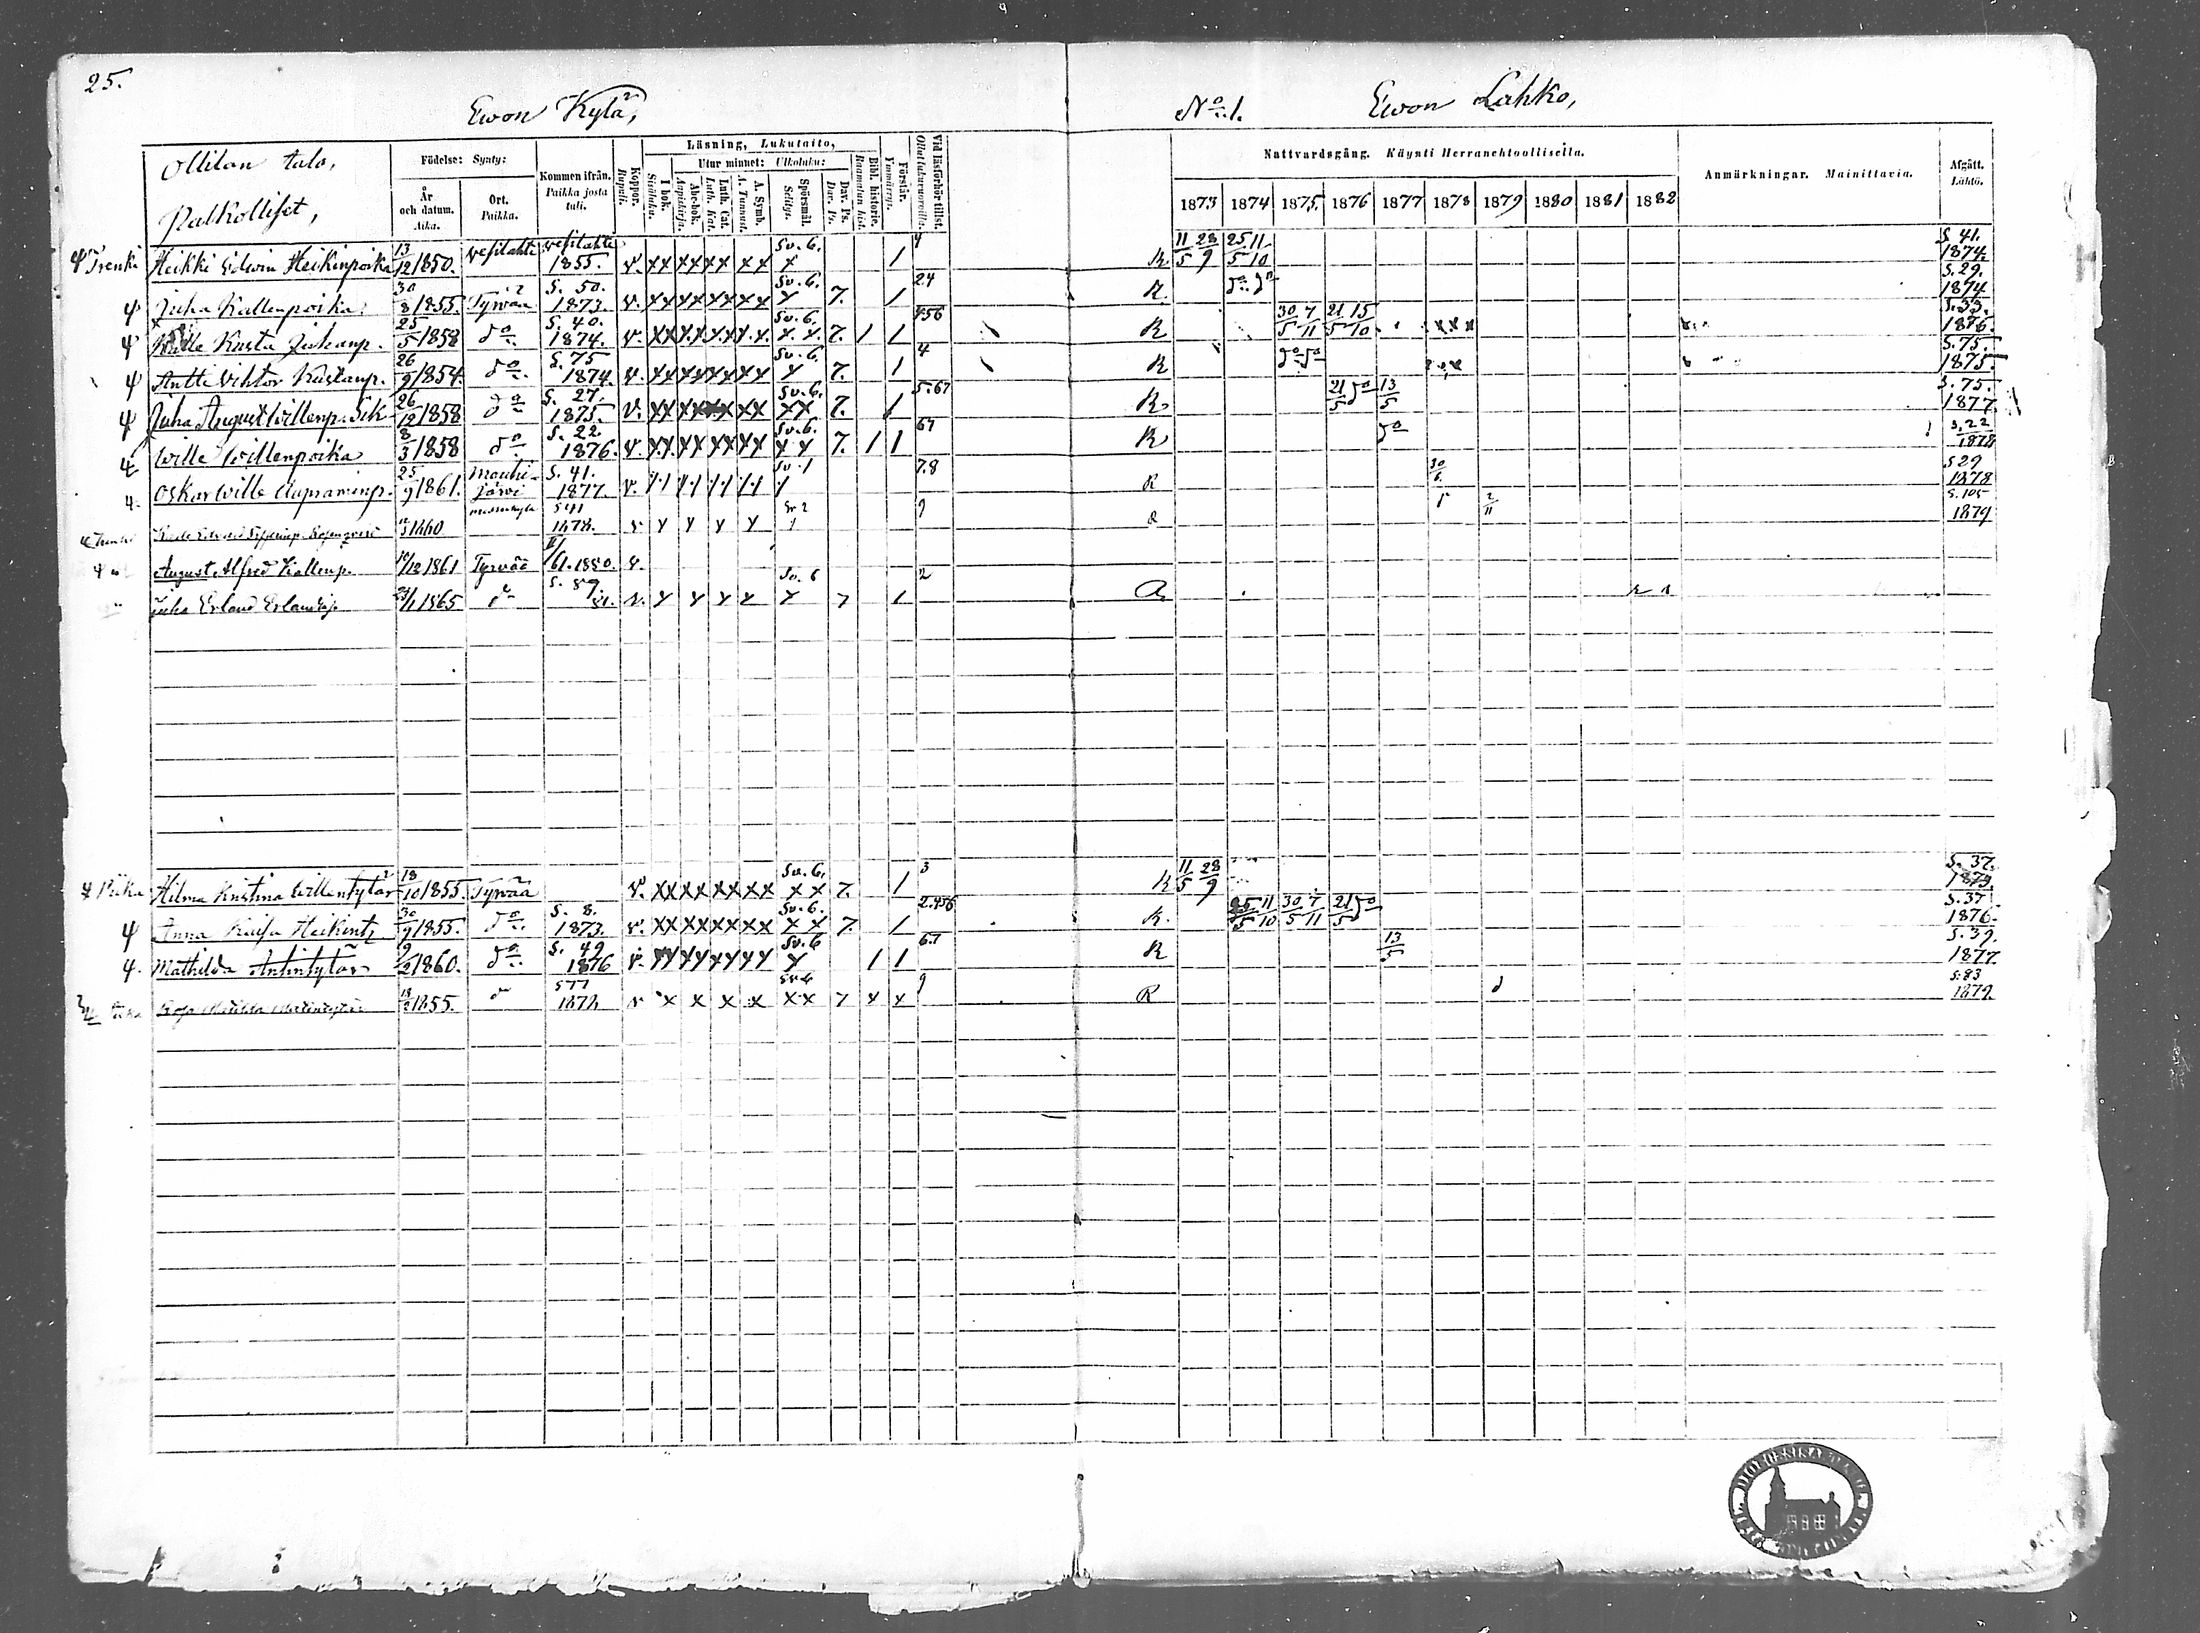 25.
Ewon Kylä,
No 1.
Ewon Lahko,
Ollilan talo,
Palkolliset,
Födelse: Synty:
År och datum. Aika.
Ort. Paikka.
Kommen ifrån. Paikka josta tuli.
Koppor. Rupuli.
Läsning, Lukutaito,
I bok. Sisäluku.
Utur minnet: Ulkoluku:
Abc-bok. Aapiskirja.
Luth. Cat. Luth. Kat.
A. Symb. A. Tunnust.
Spörsmål. Selitys.
Dav. Ps. Dav. Ps.
Bibl. historie. Raamatun hist.
Förstår. Ymmärrys.
Vid läsförhör tillst. Ollut lukuvuoroilla.
Nattvardsgång. Käynti Herranehtoollisella.
1873 1874 1875 1876 1877 1878 1879 1880 1881 1882
Anmärkningar. Mainittavia.
Afgått. Lähtö.
Trenki Heikki Edwin Heikinpoika 13/12 1850. Wesilahti Wesilahti 1855. v. xx xx xx xx Sv. 6. x 1 4 R 11/5 28/9 25/5 11/10 S. 41. 1874.
Juha Kallenpoika. 30/8 1855. Tyrwää S. 50. 1873. v. xx xx xx xx Sv. 6. x 7. 1 24 R do do S. 29. 1874
Wille Kusta Juhanp. 25/5 1858 do S. 40. 1874. v. xx xx xx xx Sv. 6. x x 7. 1 1 456 R 30/5 7/11 21/5 15/10 S. 33. 1876.
Antti Vihtor Kustanp. 26/9 1854. do S. 75 1874. v. xx xx xx xx Sv. 6. x 7. 1 4 R do do S. 75. 1875.
Juha August Willenp. Sik 26/12 1858 do S. 27. 1875. v. xx xx xx xx Sv. 6. xx 7. 1 5.67 R 21/5 do 13/5 S. 75. 1877.
Wille Willenpoika 8/3 1858 do S. 22 1876. v. xx xx xx xx Sv. 6. x x 7. 1 1 67 R do S. 22 1878
Oskar Wille 25/9 1861. Mouhijärvi S. 41. 1877. v. Sv. 1 7.8 R 30/6 S 29 1878
1860 S 41 1878. v x x x x Sv 2 9 R 2/11 S. 105 1879
August Alfred Kallenp. 10/12 1861 Tyrwää /61. 1880. v.
Juha Erland Erlandinp. 1865 do S. 87. 81. v. x x x x Sv. 6 x 7 1 2
Piika Hilma Kristina Willentytär 18/10 1855. Tyrwää v. xx xx xx xx Sv. 6. x x 7. 1 3 R 11/5 28/9 S. 37. 1873.
Anna Kaisa Heikint. 30/9 1855. do S. 8. 1873. v. xx xx xx xx Sv. 6. x x 7. 1 2.456 R. 25/5 11/10 30/5 7/11 21/5 do S. 37 1876.
Mathilda Antintytär 9/2 1860. do S. 49 1876 v. xx xx xx xx Sv. 6 x 1 1 6.7 R 13/5 S. 39. 1877.
1855. do S 77 1878 v x x x x Sv 6 xx 7 x x 9 R S. 83 1879.